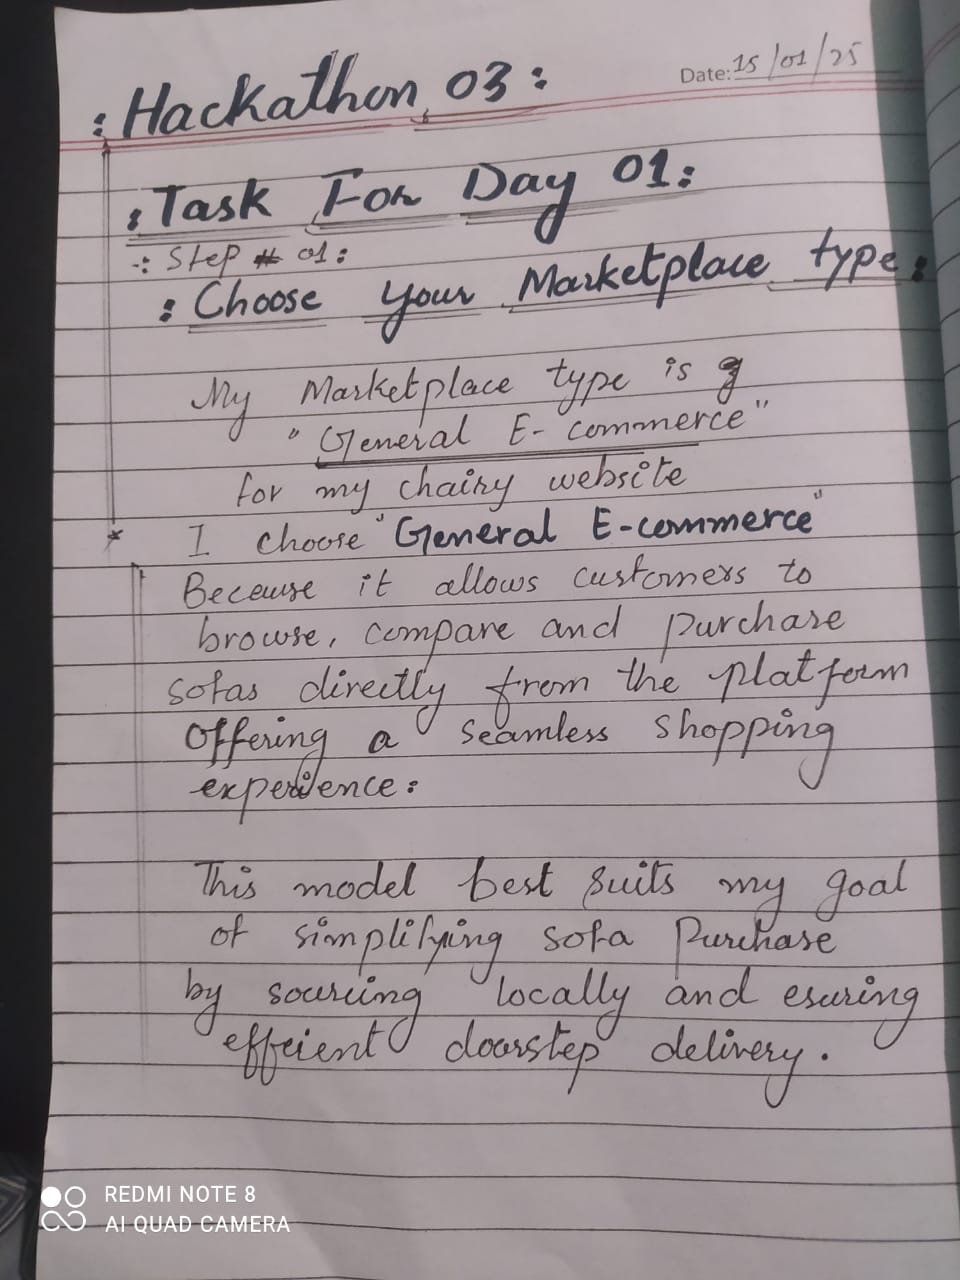 Date: 15/01/25
: Hackathon 03 :
: Task For Day 01:
-: Step # 01 :
: Choose your Marketplace type :
My Marketplace type is
"General E-commerce"
for my chairy website
I choose "General E-commerce"
Because it allows customers to
browse, compare and purchase
sofas directly from the platform
offering a seamless shopping
experience :
This model best suits my goal
of simplifying sofa Purchase
by sourcing locally and esuring
effcient doorstep delivery.
REDMI NOTE 8
AI QUAD CAMERA